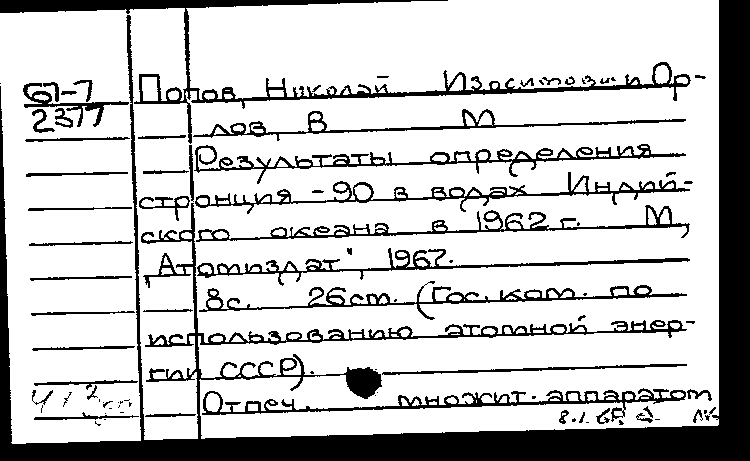 61-7
2377
Попов, Николай и Ор-
лов, В М
Результаты определения
стронция -90 в водах Индий-
ского океана в 1962 г. М,
"Атомиздат", 1967.
8с. 26см. (Гос. ком. по
использованию атомной энер-
гии СССР).
Отпеч. множит. аппаратом